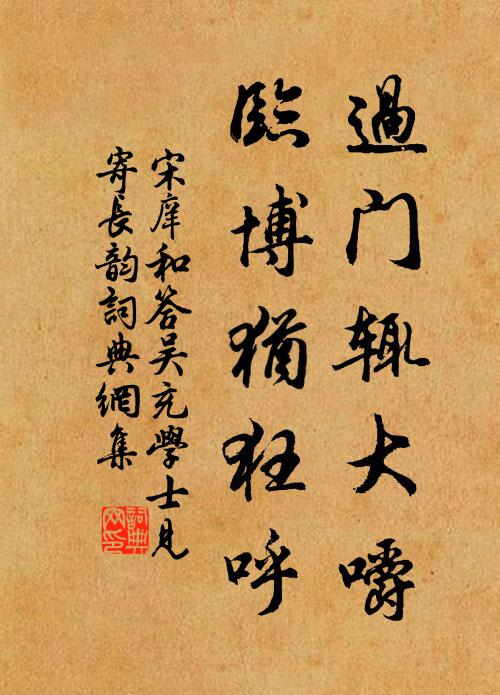 過门辄大嚼
臨博猶狂呼
宋庠和答吴充學士見
寄長韵詞典網集
詞典
网印